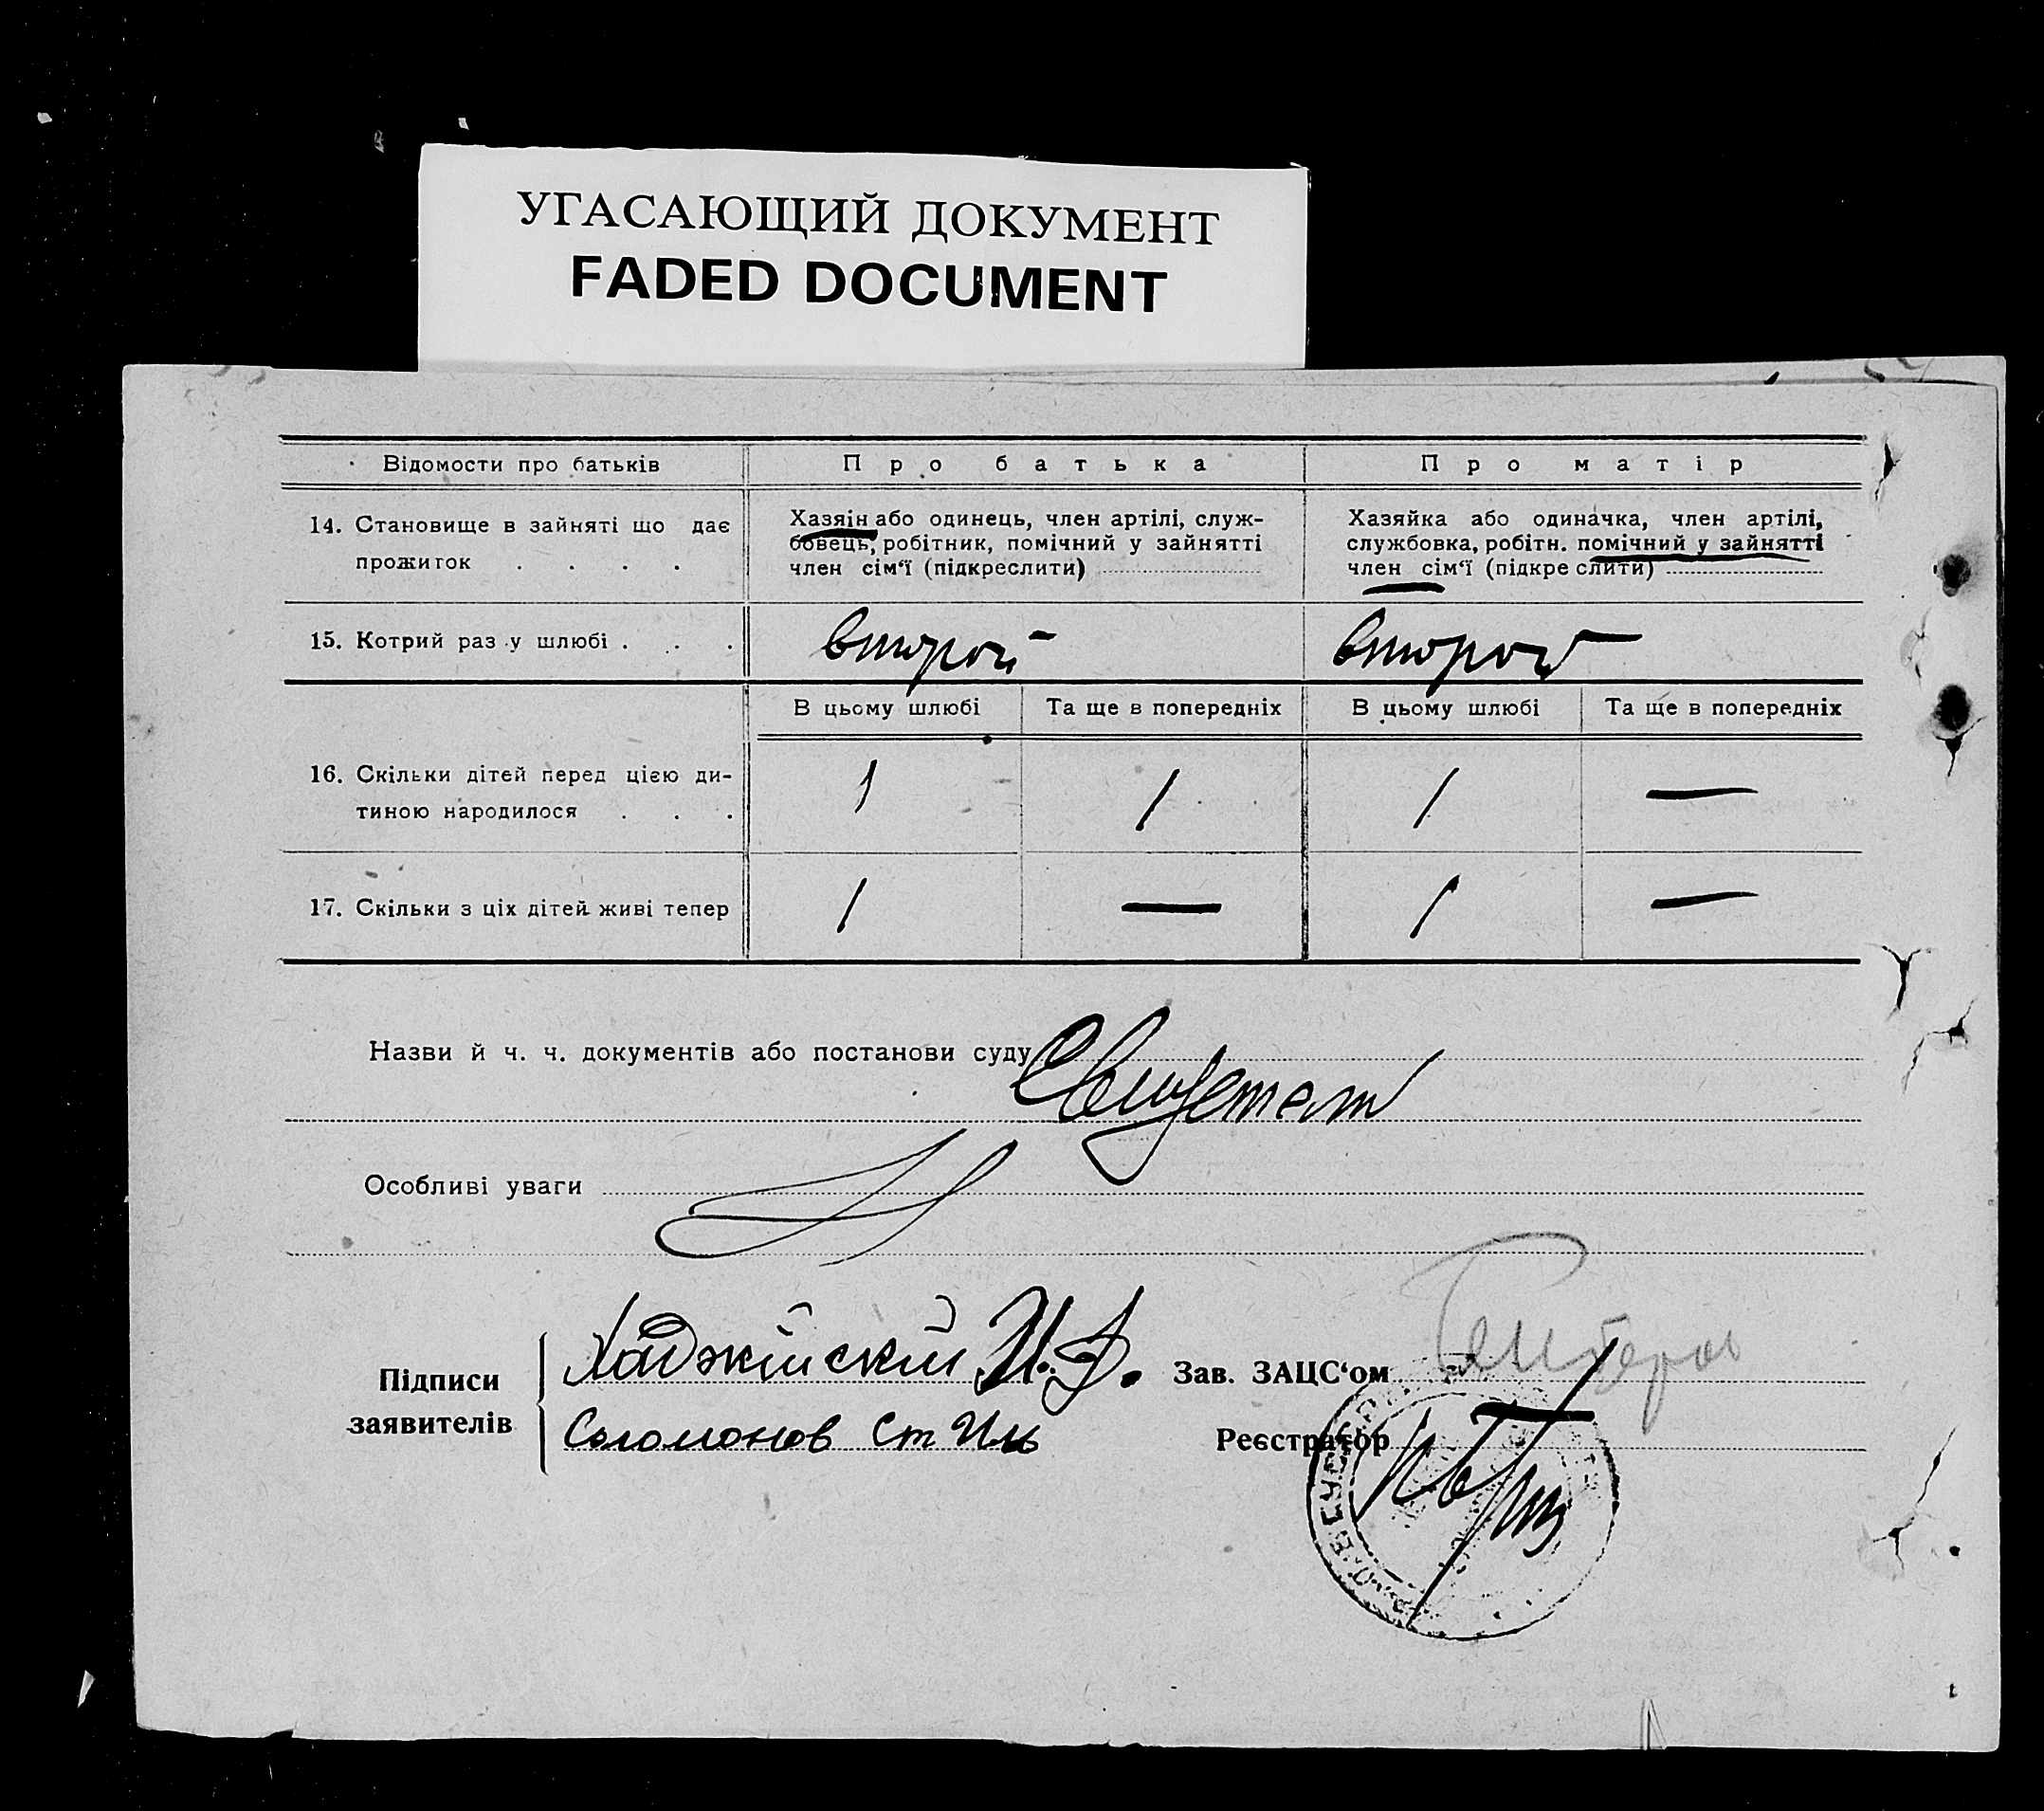 УГАСАЮЩИЙ ДОКУМЕНТ
FADED DOCUMENT
Відомости про батьків
Про батька
Про матір
14. Становище в зайняті що дає
прожиток . . . .
Хазяін або одинець, член артілі, служ-
бовець, робітник, помічний у зайнятті
член сім‘ї (підкреслити)
Хазяйка або одиначка, член артілі,
службовка, робітн. помічний у зайнятті
член сім‘ї (підкреслити)
15. Котрий раз у шлюбі . . .
второй
второй
В цьому шлюбі
Та ще в попередніх
В цьому шлюбі
Та ще в попередніх
16. Скільки дітей перед цією ди-
тиною народилося . . .
1
1
1
—
17. Скільки з ціх дітей живі тепер
1
—
1
—
Назви й ч. ч. документів або постанови суду
Свидетели
Особливі уваги
Підписи
заявителів
Хаджійскій И.Д.
Соломонов Ст Ил
Зав. ЗАЦС‘ом
Реєстратор